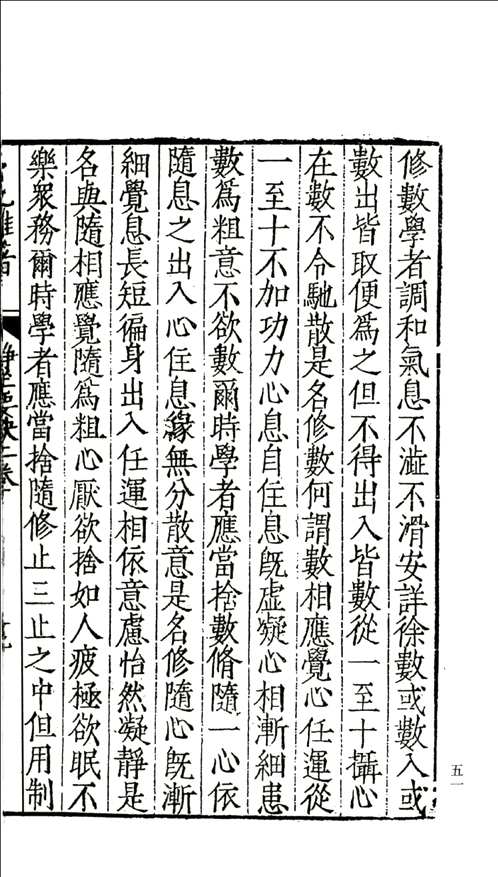 修數學者調和氣息不澁不滑安詳徐數或數入或
數出皆取便爲之但不得出入皆數從一至十攝心
在數不令馳散是名修數何謂數相應覺心任運從
一至十不加功力心息自住息既虛凝心相漸細患
數爲粗意不欲數爾時學者應當捨數脩隨一心依
隨息之出入心住息緣無分散意是名修隨心既漸
細覺息長短徧身出入任運相依意慮怡然凝靜是
名與隨相應覺隨爲粗心厭欲捨如人疲極欲眠不
樂衆務爾時學者應當捨隨修止三止之中但用制
五一